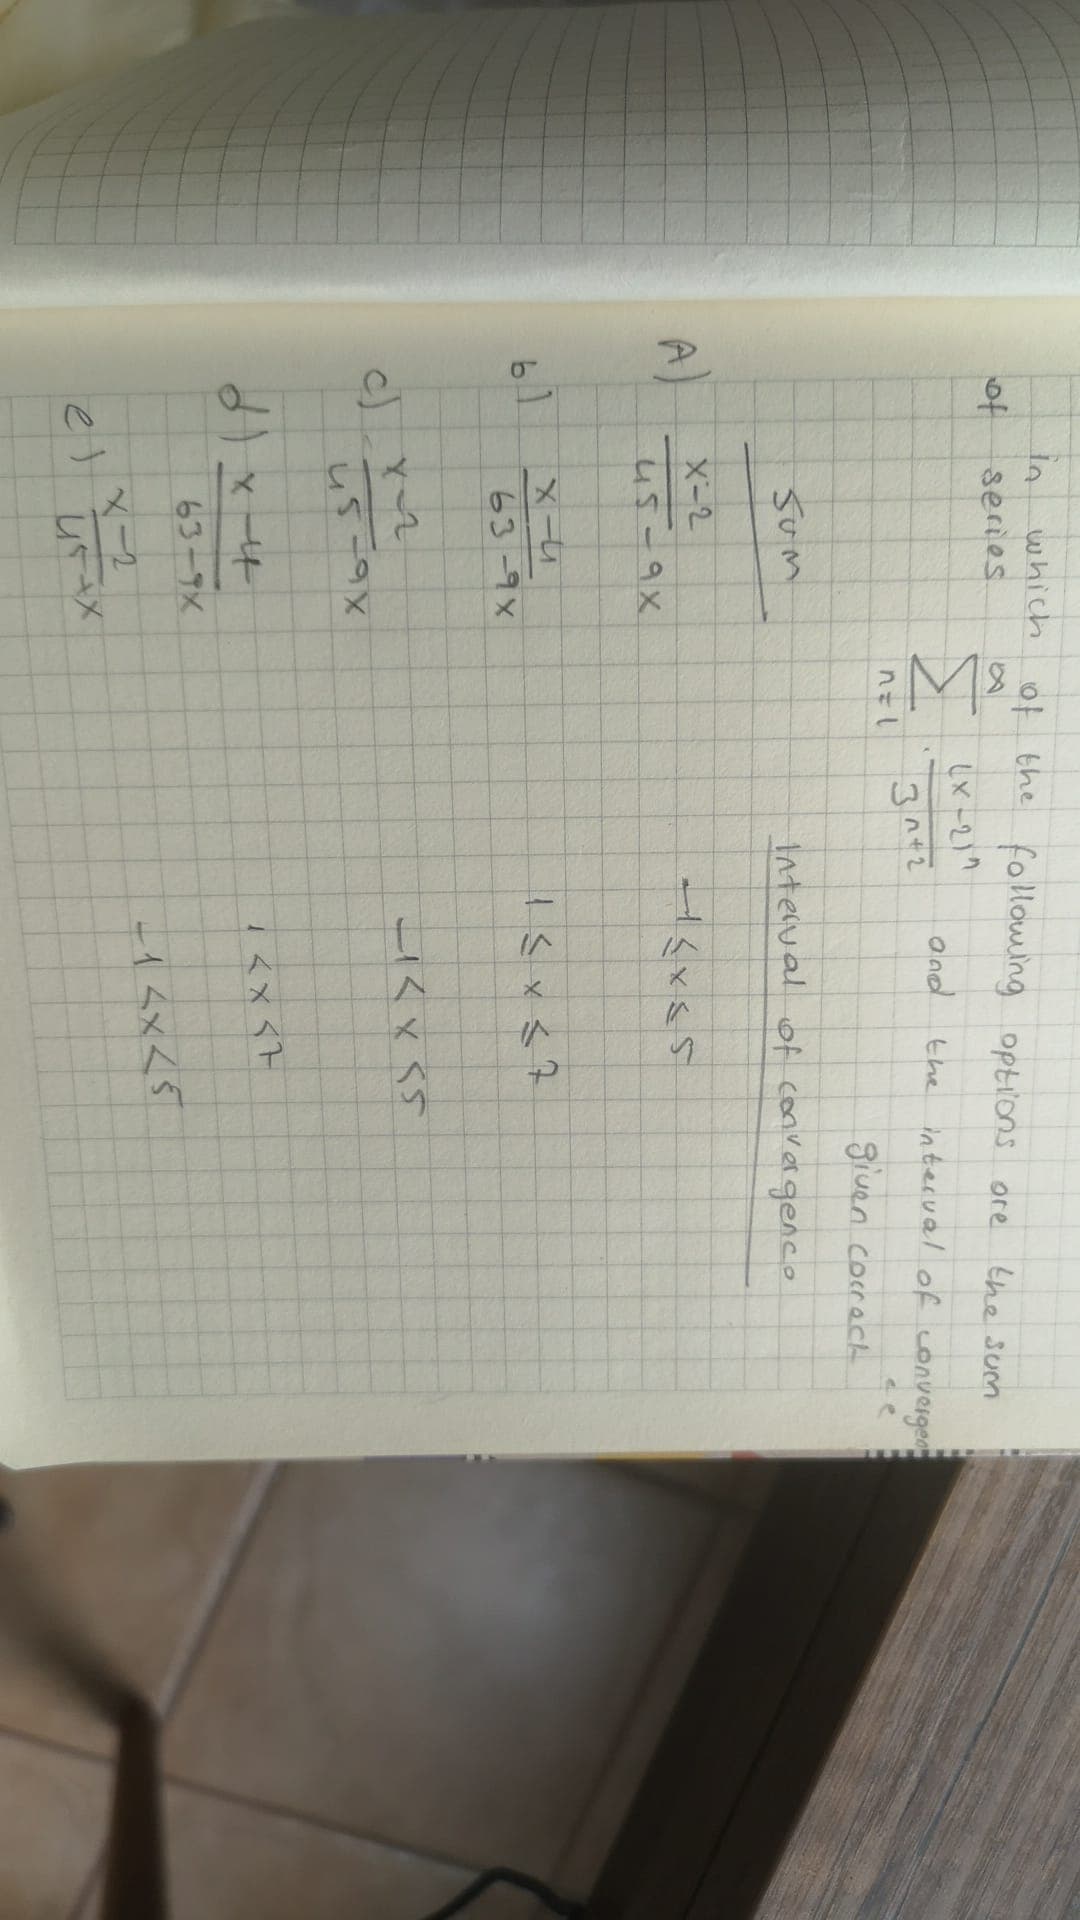 In which of the following options are the sum
of series ∞ Σ n=1 (x-2)^n / 3^n+2 and the interval of convergen
ce
given correct
Sum Interval of convergence
A) x-2 / 45-9x -1≤x≤5
b) x-4 / 63-9x 1≤x≤7
c) x-2 / 45-9x -1<x<5
d) x-4 / 63-9x 1<x<7
e) x-2 / 45-x -1<x<5